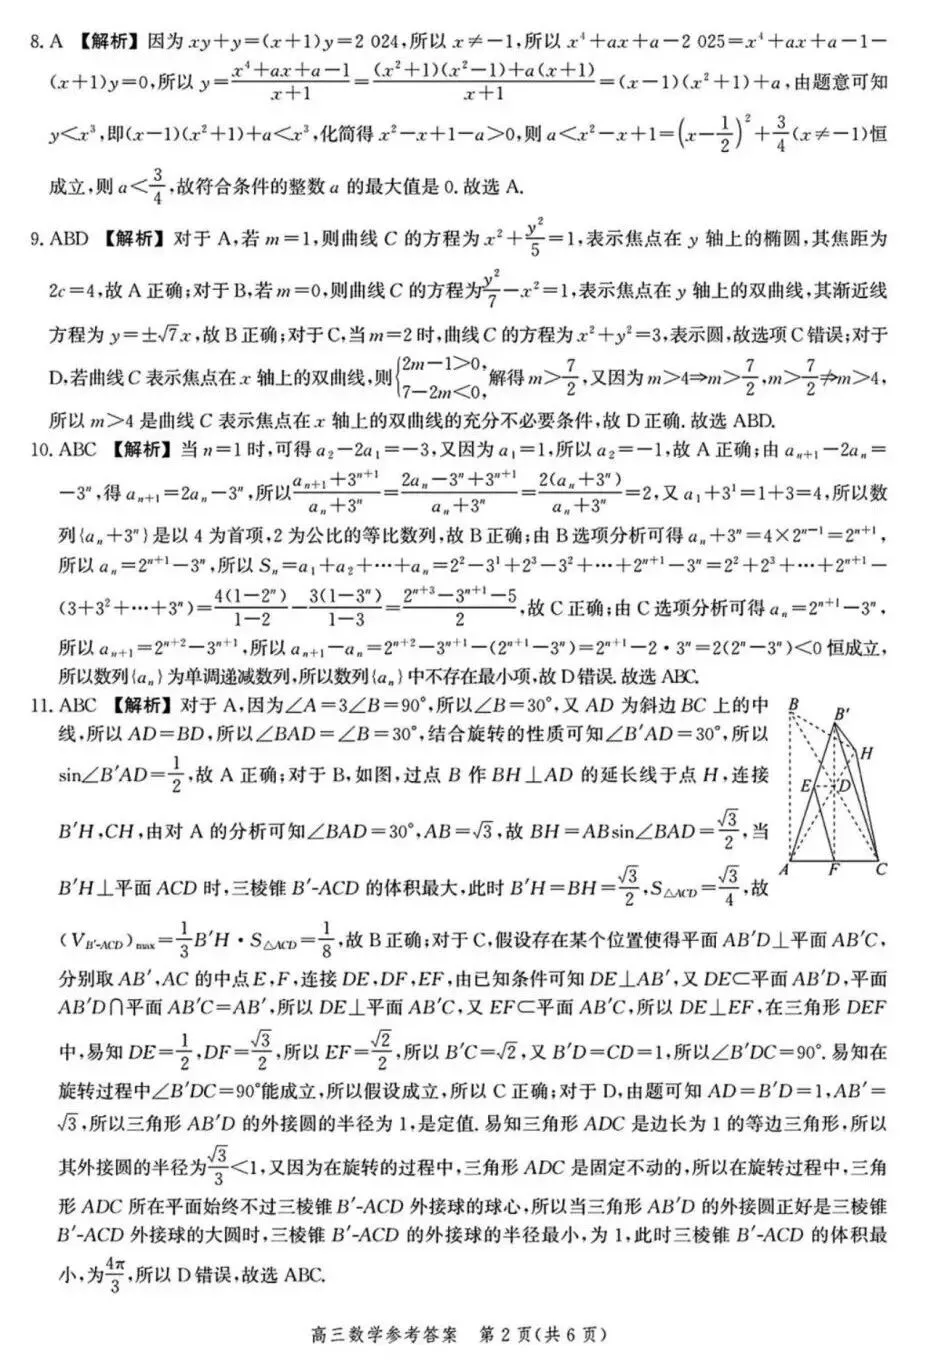 8. A 【解析】因为 xy+y=(x+1)y=2 024,所以 x≠-1,所以 x⁴+ax+a-2 025=x⁴+ax+a-1-
(x+1)y=0,所以 y=\frac{x⁴+ax+a-1}{x+1}=\frac{(x²+1)(x²-1)+a(x+1)}{x+1}=(x-1)(x²+1)+a,由题意可知
y<x³,即(x-1)(x²+1)+a<x³,化简得 x²-x+1-a>0,则 a<x²-x+1=(x-\frac{1}{2})²+\frac{3}{4}(x≠-1)恒
成立,则 a<\frac{3}{4},故符合条件的整数 a 的最大值是 0.故选 A.
9. ABD 【解析】对于 A,若 m=1,则曲线 C 的方程为 x²+\frac{y²}{5}=1,表示焦点在 y 轴上的椭圆,其焦距为
2c=4,故 A 正确;对于 B,若 m=0,则曲线 C 的方程为\frac{y²}{7}-x²=1,表示焦点在 y 轴上的双曲线,其渐近线
方程为 y=±√7x,故 B 正确;对于 C,当 m=2 时,曲线 C 的方程为 x²+y²=3,表示圆,故选项 C 错误;对于
D,若曲线 C 表示焦点在 x 轴上的双曲线,则{2m-1>0, 7-2m<0,解得 m>\frac{7}{2},又因为 m>4⇒m>\frac{7}{2},m>\frac{7}{2}⇏m>4,
所以 m>4 是曲线 C 表示焦点在 x 轴上的双曲线的充分不必要条件,故 D 正确.故选 ABD.
10. ABC 【解析】当 n=1 时,可得 a₂-2a₁=-3,又因为 a₁=1,所以 a₂=-1,故 A 正确;由 aₙ₊₁-2aₙ=
-3ⁿ,得 aₙ₊₁=2aₙ-3ⁿ,所以\frac{aₙ₊₁+3ⁿ⁺¹}{aₙ+3ⁿ}=\frac{2aₙ-3ⁿ+3ⁿ⁺¹}{aₙ+3ⁿ}=\frac{2(aₙ+3ⁿ)}{aₙ+3ⁿ}=2,又 a₁+3¹=1+3=4,所以数
列{aₙ+3ⁿ}是以 4 为首项,2 为公比的等比数列,故 B 正确;由 B 选项分析可得 aₙ+3ⁿ=4×2ⁿ⁻¹=2ⁿ⁺¹,
所以 aₙ=2ⁿ⁺¹-3ⁿ,所以 Sₙ=a₁+a₂+⋯+aₙ=2²-3¹+2³-3²+⋯+2ⁿ⁺¹-3ⁿ=2²+2³+⋯+2ⁿ⁺¹-
(3+3²+⋯+3ⁿ)=\frac{4(1-2ⁿ)}{1-2}-\frac{3(1-3ⁿ)}{1-3}=\frac{2ⁿ⁺³-3ⁿ⁺¹-5}{2},故 C 正确;由 C 选项分析可得 aₙ=2ⁿ⁺¹-3ⁿ,
所以 aₙ₊₁=2ⁿ⁺²-3ⁿ⁺¹,所以 aₙ₊₁-aₙ=2ⁿ⁺²-3ⁿ⁺¹-(2ⁿ⁺¹-3ⁿ)=2ⁿ⁺¹-2·3ⁿ=2(2ⁿ-3ⁿ)<0 恒成立,
所以数列{aₙ}为单调递减数列,所以数列{aₙ}中不存在最小项,故 D 错误.故选 ABC.
11. ABC 【解析】对于 A,因为∠A=3∠B=90°,所以∠B=30°,又 AD 为斜边 BC 上的中
线,所以 AD=BD,所以∠BAD=∠B=30°,结合旋转的性质可知∠B′AD=30°,所以
sin∠B′AD=\frac{1}{2},故 A 正确;对于 B,如图,过点 B 作 BH⊥AD 的延长线于点 H,连接
B′H,CH,由对 A 的分析可知∠BAD=30°,AB=√3,故 BH=ABsin∠BAD=\frac{√3}{2},当
B′H⊥平面 ACD 时,三棱锥 B′-ACD 的体积最大,此时 B′H=BH=\frac{√3}{2},S△ACD=\frac{√3}{4},故
B
B′
H
E
D
A
F
C
(V_{B′-ACD})ₘₐₓ=\frac{1}{3}B′H·S△ACD=\frac{1}{8},故 B 正确;对于 C,假设存在某个位置使得平面 AB′D⊥平面 AB′C,
分别取 AB′,AC 的中点 E,F,连接 DE,DF,EF,由已知条件可知 DE⊥AB′,又 DE⊂平面 AB′D,平面
AB′D∩平面 AB′C=AB′,所以 DE⊥平面 AB′C,又 EF⊂平面 AB′C,所以 DE⊥EF,在三角形 DEF
中,易知 DE=\frac{1}{2},DF=\frac{√3}{2},所以 EF=\frac{√2}{2},所以 B′C=√2,又 B′D=CD=1,所以∠B′DC=90°.易知在
旋转过程中∠B′DC=90°能成立,所以假设成立,所以 C 正确;对于 D,由题可知 AD=B′D=1,AB′=
√3,所以三角形 AB′D 的外接圆的半径为 1,是定值.易知三角形 ADC 是边长为 1 的等边三角形,所以
其外接圆的半径为\frac{√3}{3}<1,又因为在旋转的过程中,三角形 ADC 是固定不动的,所以在旋转过程中,三角
形 ADC 所在平面始终不过三棱锥 B′-ACD 外接球的球心,所以当三角形 AB′D 的外接圆正好是三棱锥
B′-ACD 外接球的大圆时,三棱锥 B′-ACD 的外接球的半径最小,为 1,此时三棱锥 B′-ACD 的体积最
小,为\frac{4π}{3},所以 D 错误,故选 ABC.
高三数学参考答案 第 2 页(共 6 页)